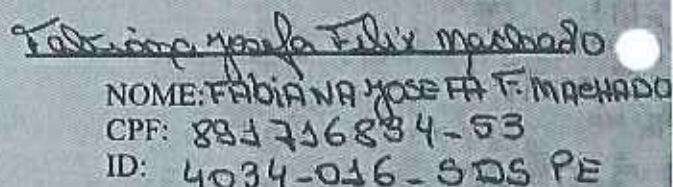 Fabiana Josefa Felix Machado
NOME: FABIANA JOSEFA F. MACHADO
CPF: 891716894-53
ID: 4034-016-SDS PE